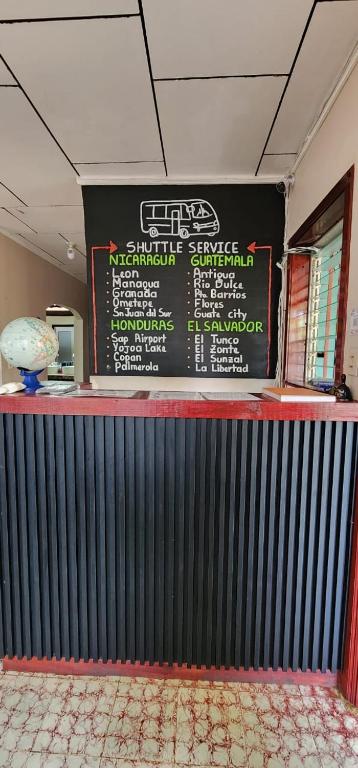 SHUTTLE SERVICE
NICARAGUA
- Leon
- Managua
- Granada
- Ometepe
- Sn Juan del Sur
GUATEMALA
- Antigua
- Rio Dulce
- Pto. Barrios
- Flores
- Guate city
HONDURAS
- Sap Airport
- Yojoa Lake
- Copan
- Palmerola
EL SALVADOR
- El Tunco
- El Zonte
- El Sunzal
- La Libertad